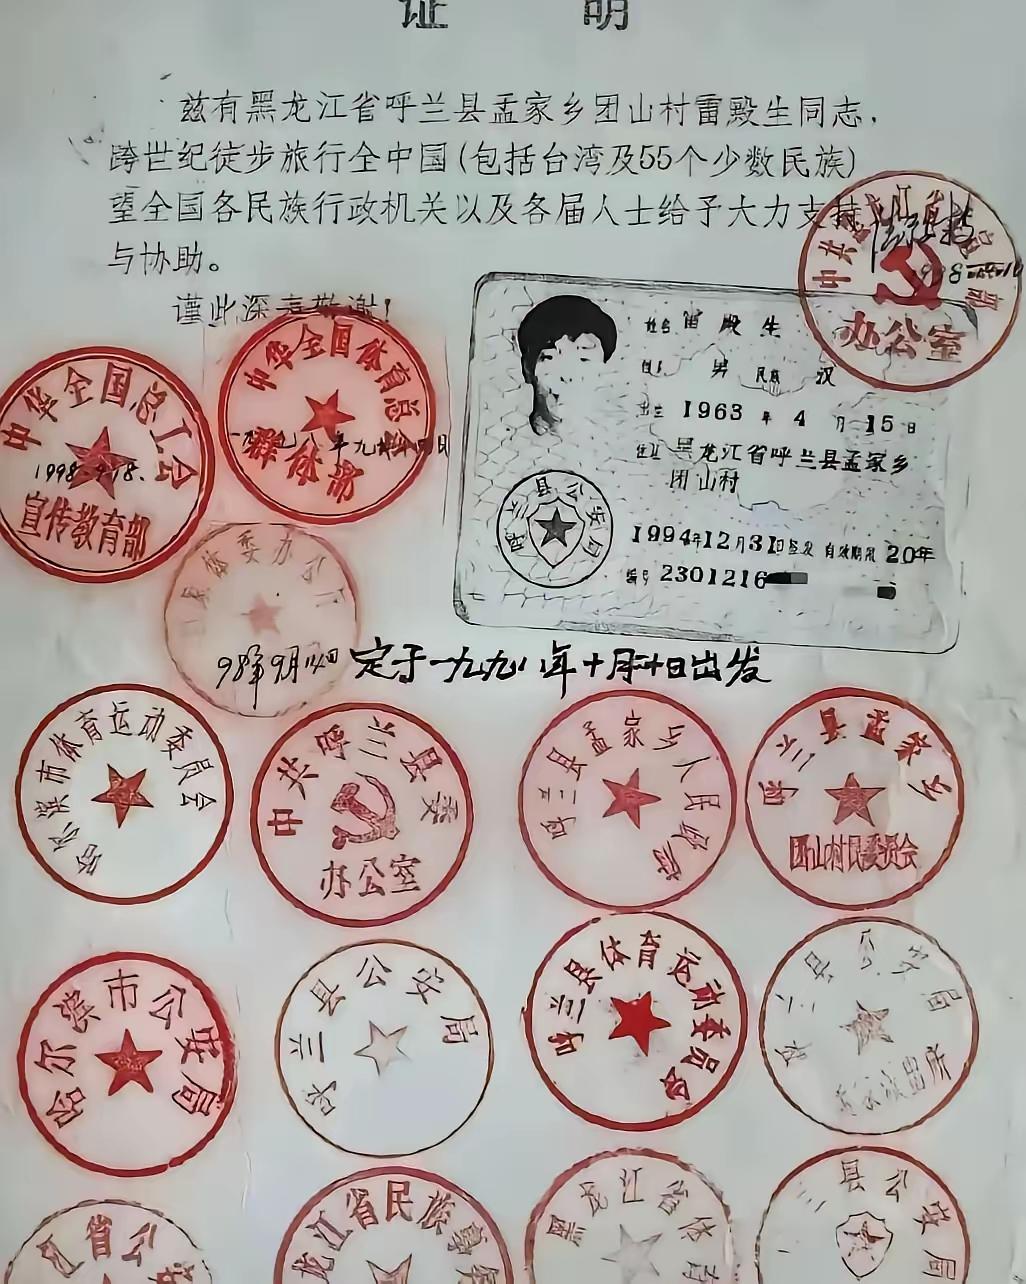 证 明
兹有黑龙江省呼兰县孟家乡团山村雷殿生同志,
跨世纪徒步旅行全中国(包括台湾及55个少数民族)
望全国各民族行政机关以及各届人士给予大力支持
与协助。
谨此深表敬谢!
中共
办公室
中华全国总工会
1998.9.18.
宣传教育部
中华全国体育总会
一九九八年九月十四日
群体部
姓名 雷殿生
性别 男 民族 汉
出生 1963 年 4 月 15 日
住址 黑龙江省呼兰县孟家乡
团山村
县公安局
1994年12月31日签发 有效期限 20年
编号 2301216
体委办公
98年9月
定于一九九八年十月二十日出发
哈尔滨市体育运动委员会
中共呼兰县委
办公室
呼兰县孟家乡人民政府
呼兰县孟家乡
团山村民委员会
哈尔滨市公安局
呼兰县公安局
呼兰县体育运动委员会
呼兰县公安局
派出所
江省公安
龙江省民族事务
黑龙江省体育
兰县公安局